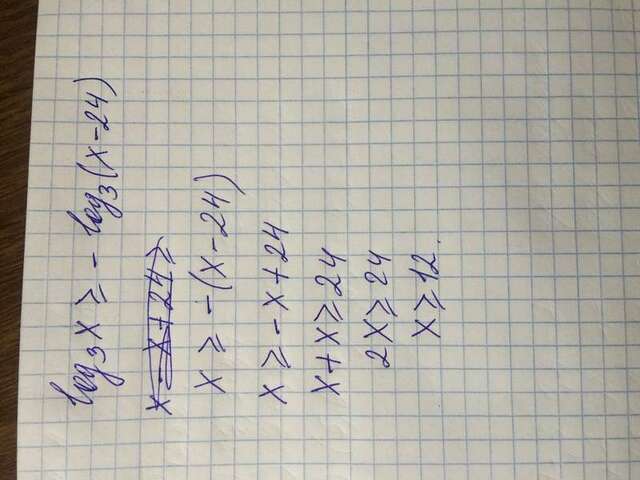 log₃x ≥ - log₃(x-24)
x - x + 24 ≥
x ≥ -(x-24)
x ≥ -x + 24
x + x ≥ 24
2x ≥ 24
x ≥ 12.